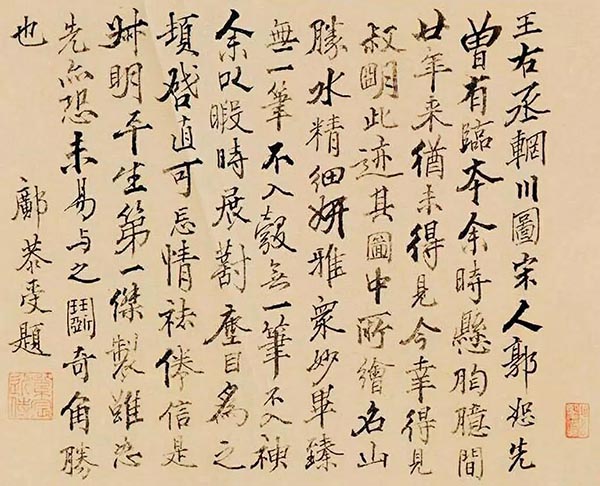 王右丞輞川圖宋人郭恕先
曾有臨本余時懸胸臆間
廿年来猶未得見今幸得見
叔明此迹其圖中所繪名山
勝水精細妍雅衆妙畢臻
無一筆不入彀无一筆不入神
余以暇時展對塵目為之
頓啓直可忘情祛倦信是
叔明平生第一傑製雖恕
先亦恐未易与之鬪奇角勝
也
恭受題